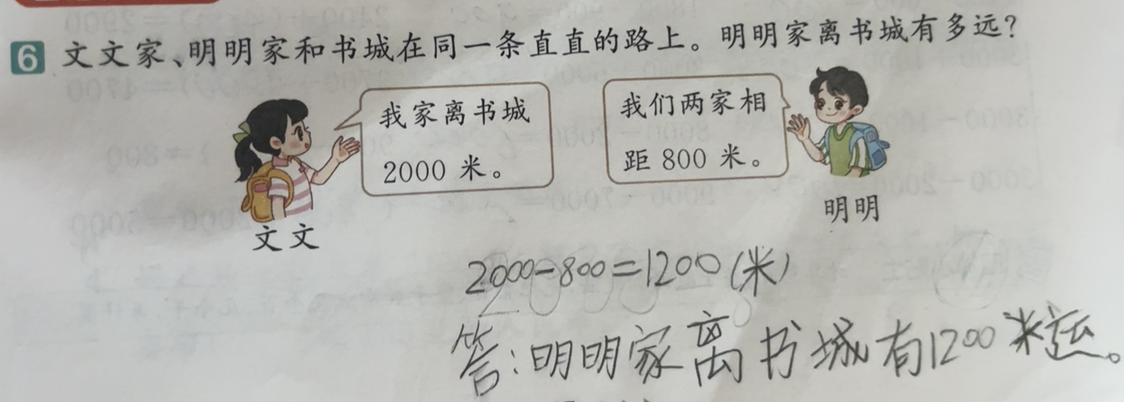 6 文文家、明明家和书城在同一条直直的路上。明明家离书城有多远?
我家离书城
2000 米。
我们两家相
距 800 米。
文文
明明
2000-800=1200(米)
答:明明家离书城有1200米远。